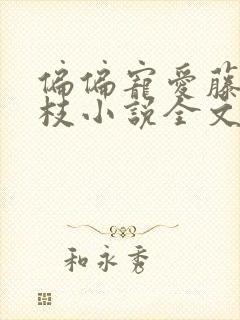 偏偏寵愛藤
枝小說全文
和永秀